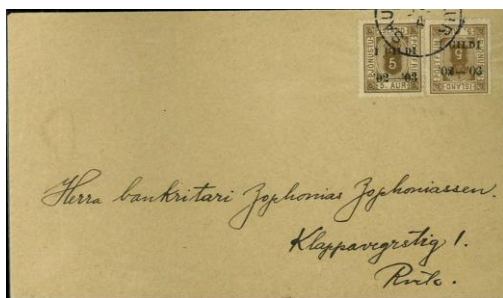 Í GILDI
5
'02–'03
5. AUR.
Í GILDI
5
'02–'03
ÍSLAND
Herra bankritari Zophonias Zophoniassen.
Klapparstig 1.
Rvík.